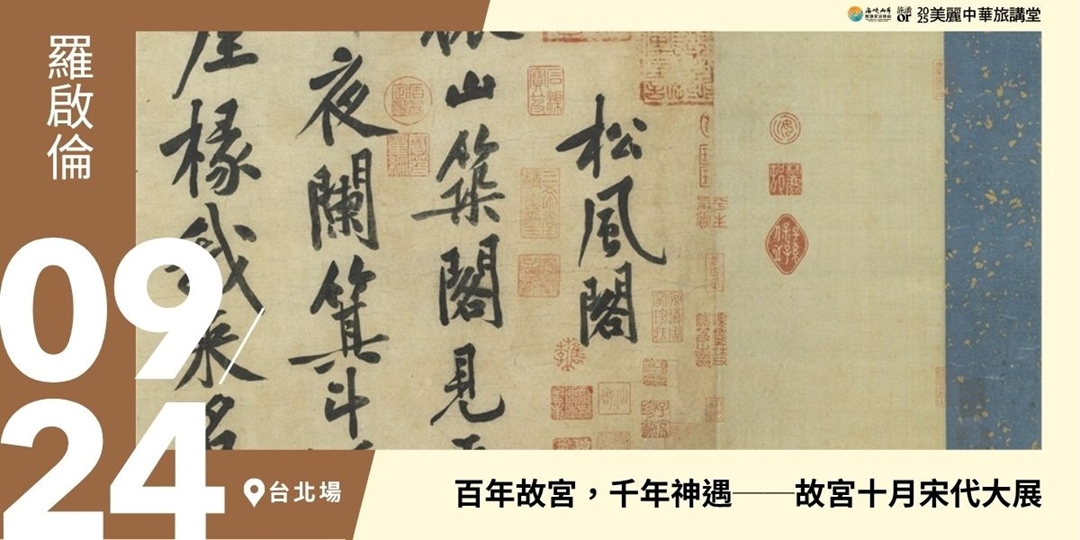 旅讀
or
2025美麗中華旅講堂
羅啟倫
松風閣
山築閣見
夜闌箕斗
椽我來名
09/24
台北場
百年故宮，千年神遇——故宮十月宋代大展